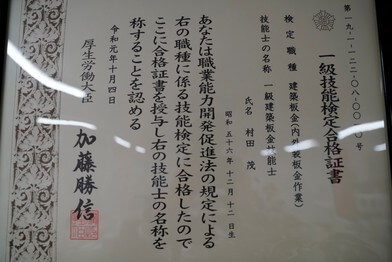 第一九-一-一二二-〇八-〇〇一〇号
一級技能検定合格証書
検定職種 建築板金(内外装板金作業)
技能士の名称 一級建築板金技能士
氏名 村田 茂
昭和五十六年十二月十二日生
あなたは職業能力開発促進法の規定による
右の職種に係る技能検定に合格したので
ここに合格証書を授与し右の技能士の名称を
称することを認める
令和元年十月四日
厚生労働大臣 加藤勝信